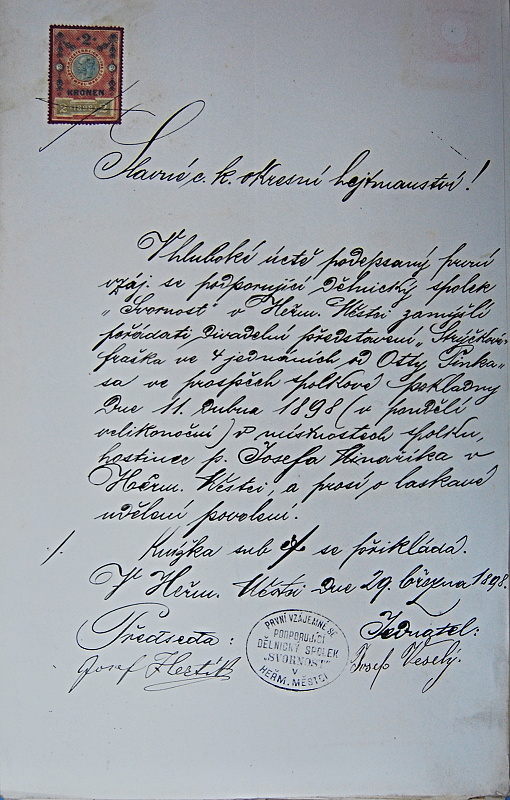 2
KRONEN
Slavné c. k. okresní hejtmanství!
V hluboké úctě podepsaný první
vzáj. se podporující Dělnický spolek
„Svornost" v Heřm. Městci zamýšlí
pořádati divadelní představení „
fraška ve 4 jednáních od Osty Pinka"
sa ve prospěch spolkové pokladny
Dne 11. dubna 1898 (v pondělí
velikonoční) v místnostech spolku,
hostinec p. Josefa Vinařika v
Heřm. Městci, a prosí o laskavé
udělení povolení.
1. Knížka sub se přikládá.
V Heřm. Městci Dne 29. března 1898.
Předseda: Jednatel:
Josef Josef Veselý.
PRVNÍ VZÁJEMNĚ SE
PODPORUJÍCÍ
DĚLNICKÝ SPOLEK
„SVORNOST"
V
HEŘM. MĚSTCI